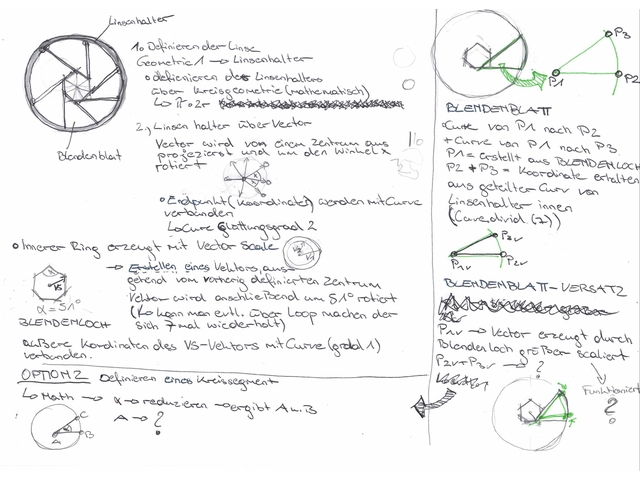 Linsenhalter
Blendenblat
1. Definieren der Linse
Geometrie 1 → Linsenhalter
definieren des Linsenhalters
über Kreisgeometrie (mathematisch)
2., Linsen halter über Vector
Vector wird von einem Zentrum aus
projezierst und um den Winkel x
rotiert
Endpunkt (Koordinates) werden mit Curve
verbunden
↳ Curve Glättungsgrad 2
Innerer Ring erzeugt mit Vector Scale
VS
VS
α = 51°
BLENDENLOCH
→ Erstellen eines Vektors, aus-
gehend vom vorherig definierten Zentrum
Vektor wird anschließend um 51° rotiert
(↳ kann man evtl. über Loop machen der
sich 7 mal wiederholt)
außere Kordinaten des VS-Vektors mit Curve (grad 1)
verbunden.
OPTION 2 Definieren eines Kreissegment
↳ Math → α → reduzieren → ergibt A u. B
A → ?
A
B
C
P1
P2
P3
BLENDENBLATT
Curve von P1 nach P2
+ Curve von P1 nach P3
P1 = erstellt aus BLENDENLOCH
P2 + P3 = Koordinate erhalten
aus geteilter Curv von
Linsenhalter innen
(Curve divid (7))
P1v
P2v
P3v
BLENDENBLATT-VERSATZ
P1v → Vector erzeugt durch
Blendenloch größer scaliert
P2v + P3v → ?
Funktioniert
?